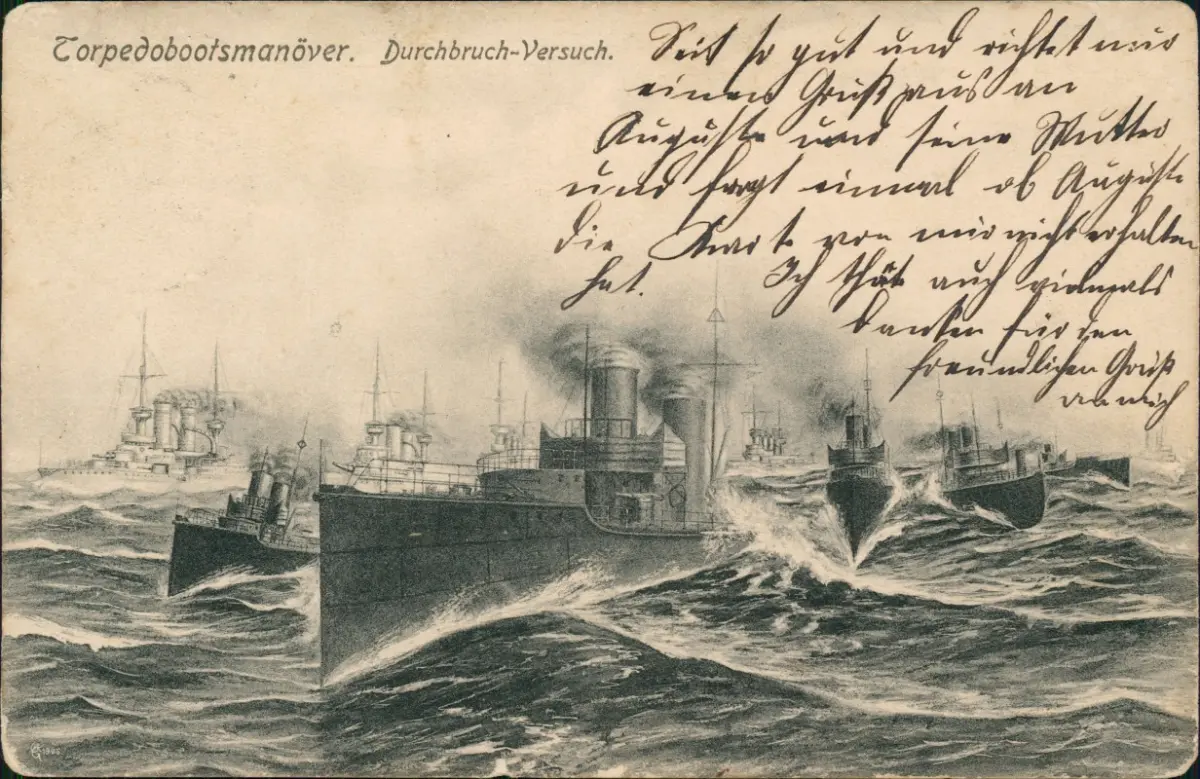 Torpedobootsmanöver. Durchbruch-Versuch.
Seit so gut und richtet mir
einen Gruß aus an
Auguste und seine Mutter
und fragt einmal ob Auguste
die Karte von mir nicht erhalten
hat. Ich thät auch vielmals
danken für den
freundlichen Gruß
an mich